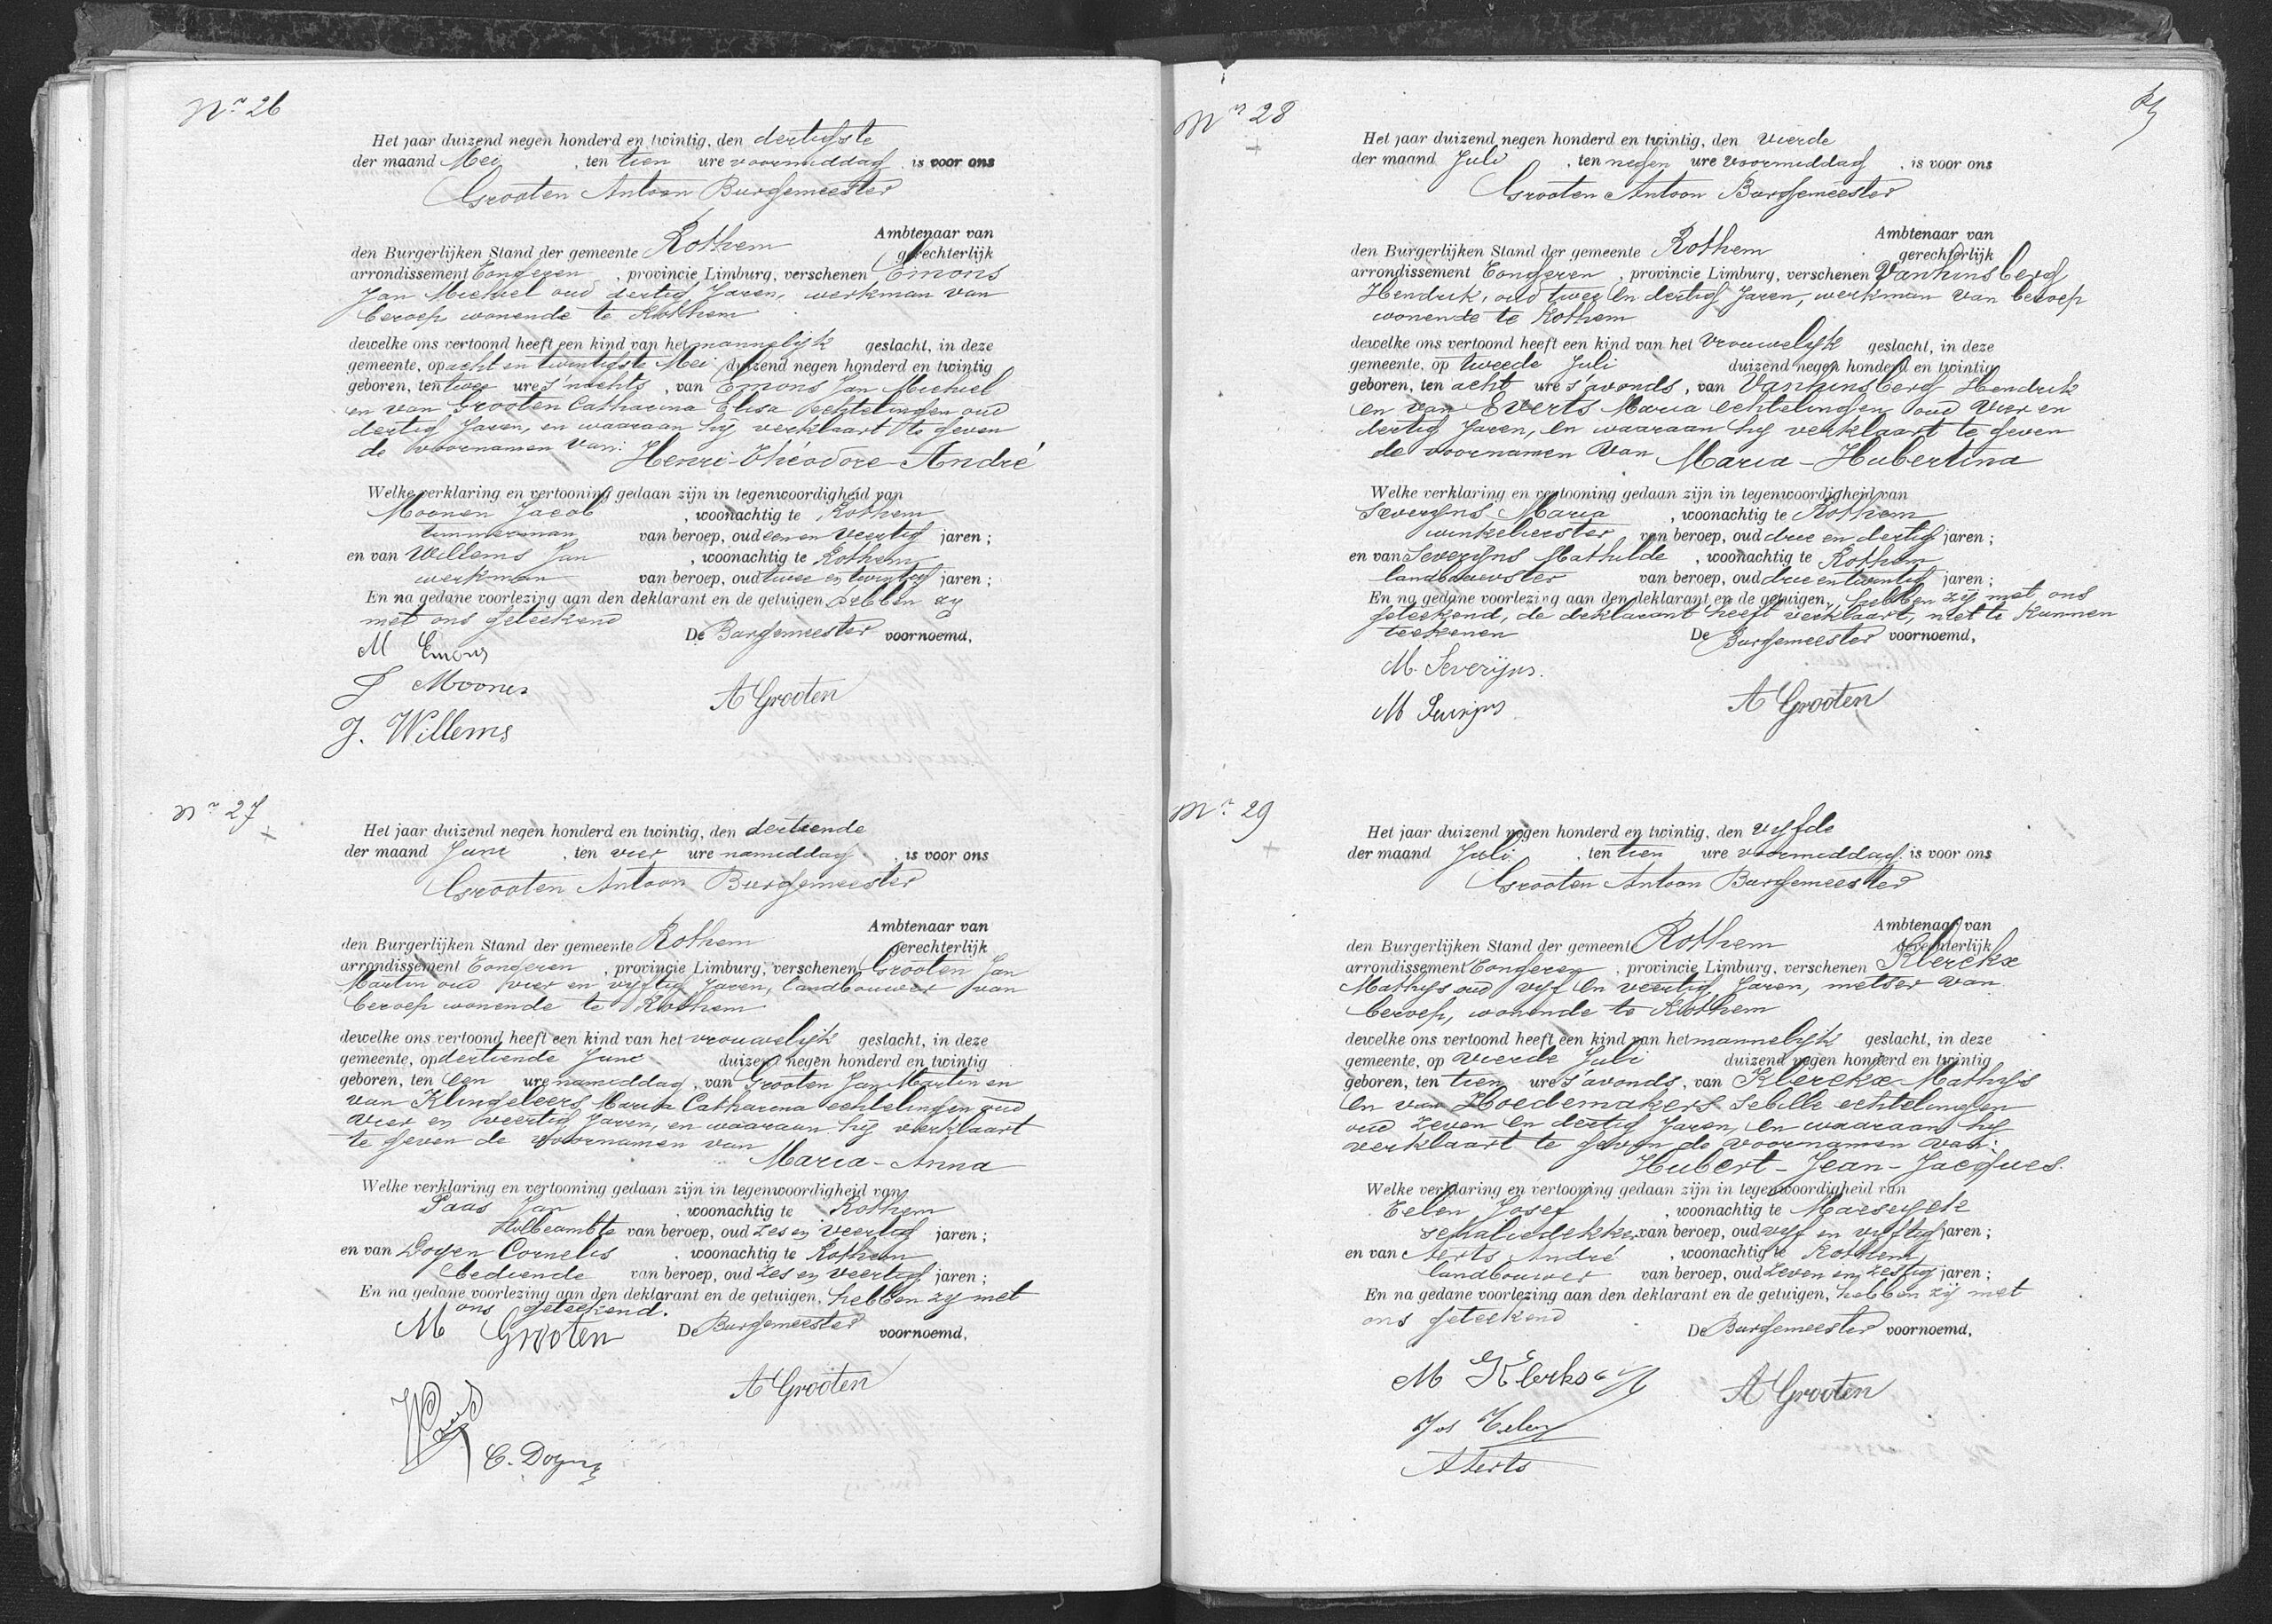 Nr 26
Het jaar duizend negen honderd en twintig, den dertigste
der maand Mei, ten tien ure voormiddag, is voor ons
Grooten Antoon Burgemeester
Ambtenaar van
den Burgerlijken Stand der gemeente Rothem gerechterlijk
arrondissement Tongeren, provincie Limburg, verschenen Emons
Jan Michiel oud dertig Jaren, werkman van
beroep wonende te Rothem
dewelke ons vertoond heeft een kind van het mannelijk geslacht, in deze
gemeente, op acht en twintigste Mei duizend negen honderd en twintig
geboren, ten twee ure s'nachts, van Emons Jan Michiel
en van Grooten Catharina Elisa echtelingen oud
dertig Jaren, en waaraan hij verklaart te geven
de voornamen van: Henri-Théodore-André
Welke verklaring en vertooning gedaan zijn in tegenwoordigheid van
Moonen Jacob, woonachtig te Rothem
timmerman van beroep, oud een en veertig jaren;
en van Willems Jan, woonachtig te Rothem
werkman van beroep, oud twee en twintig jaren;
En na gedane voorlezing aan den deklarant en de getuigen hebben zy
met ons geteekend
De Burgemeester voornoemd,
M Emons
J Moonen
A Grooten
J. Willems
Nr 27
+
Het jaar duizend negen honderd en twintig, den dertiende
der maand Juni, ten vier ure namiddag, is voor ons
Grooten Antoon Burgemeester
Ambtenaar van
den Burgerlijken Stand der gemeente Rothem gerechterlijk
arrondissement Tongeren, provincie Limburg, verschenen Grooten Jan
Martin oud vier en vyftig Jaren, landbouwer van
beroep wonende te Rothem
dewelke ons vertoond heeft een kind van het vrouwelijk geslacht, in deze
gemeente, op dertiende Juni duizend negen honderd en twintig
geboren, ten een ure namiddag, van Grooten Jan Martin en
van Klingeleers Maria Catharina echtelingen oud
vier en veertig Jaren, en waaraan hij verklaart
te geven de voornamen van
Maria-Anna
Welke verklaring en vertooning gedaan zijn in tegenwoordigheid van
Paas Jan, woonachtig te Rothem
tolbeambte van beroep, oud zes en veertig jaren;
en van Doyen Cornelis, woonachtig te Rothem
bediende van beroep, oud zes en veertig jaren;
En na gedane voorlezing aan den deklarant en de getuigen, hebben zy met
ons geteekend.
M Grooten
De Burgemeester voornoemd,
A Grooten
C. Doyen
Nr 28
+
Het jaar duizend negen honderd en twintig, den vierde
der maand Juli, ten negen ure voormiddag, is voor ons
Grooten Antoon Burgemeester
Ambtenaar van
den Burgerlijken Stand der gemeente Rothem gerechterlijk
arrondissement Tongeren, provincie Limburg, verschenen Vanhinsberg
Hendrik, oud twee en dertig Jaren, werkman van beroep
wonende te Rothem
dewelke ons vertoond heeft een kind van het vrouwelijk geslacht, in deze
gemeente, op tweede Juli duizend negen honderd en twintig
geboren, ten acht ure s'avonds, van Vanhinsberg Hendrik
en van Everts Maria echtelingen oud vier en
dertig Jaren, en waaraan hij verklaart te geven
de voornamen van Maria-Hubertina
Welke verklaring en vertooning gedaan zijn in tegenwoordigheid van
Severyns Maria, woonachtig te Rothem
winkelierster van beroep, oud drie en dertig jaren;
en van Severyns Mathilde, woonachtig te Rothem
landbouwster van beroep, oud drie en twintig jaren;
En na gedane voorlezing aan den deklarant en de getuigen, hebben zij met ons
geteekend, de deklarant heeft verklaart, niet te kunnen
teekenen
De Burgemeester voornoemd,
M. Severijns.
A Grooten
M Severijns
Nr 29
+
Het jaar duizend negen honderd en twintig, den vyfde
der maand Juli, ten tien ure voormiddag, is voor ons
Grooten Antoon Burgemeester
Ambtenaar van
den Burgerlijken Stand der gemeente Rothem gerechterlijk
arrondissement Tongeren, provincie Limburg, verschenen Klerckx
Mathijs oud vyf en veertig Jaren, metser van
beroep, wonende te Rothem
dewelke ons vertoond heeft een kind van het mannelyk geslacht, in deze
gemeente, op vierde Juli duizend negen honderd en twintig
geboren, ten tien ure s'avonds, van Klerckx Mathys
en van Hoedemakers Sebille echtelingen
oud zeven en dertig Jaren, en waaraan hij
verklaart te geven de voornamen van:
Hubert-Jean-Jacques.
Welke verklaring en vertooning gedaan zijn in tegenwoordigheid van
Eelen Josef, woonachtig te Maeseyck
schaliedekker van beroep, oud vyf en vyftig jaren;
en van Aerts André, woonachtig te Rothem
landbouwer van beroep, oud zeven en zestig jaren;
En na gedane voorlezing aan den deklarant en de getuigen, hebben zij met
ons geteekend
De Burgemeester voornoemd,
M Klerks
A Grooten
Jos Eelen
A Aerts